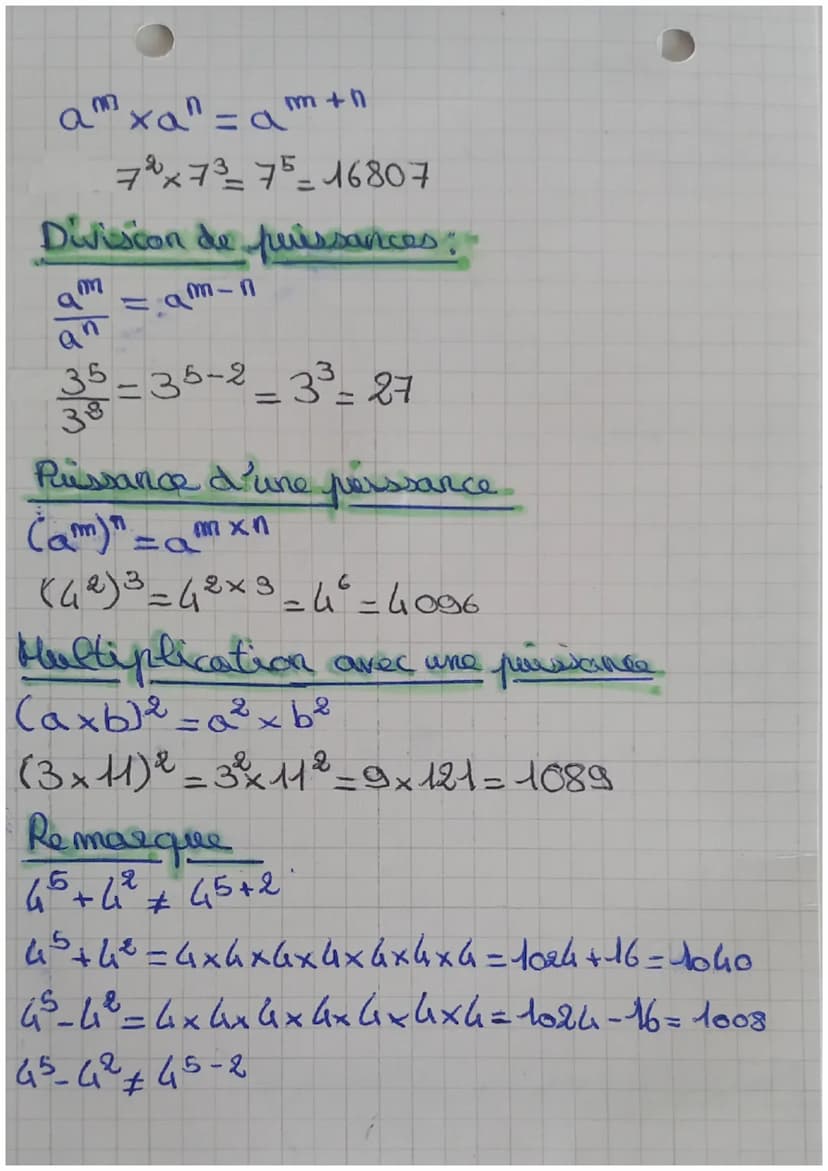 aᵐ × aⁿ = aᵐ⁺ⁿ
7² × 7³ = 7⁵ = 16807
Division de puissances :
aᵐ/aⁿ = aᵐ⁻ⁿ
3⁵/3⁸ = 3⁵⁻² = 3³ = 27
Puissance d'une puissance
(aᵐ)ⁿ = aᵐ ˣ ⁿ
(4²)³ = 4² ˣ ³ = 4⁶ = 4096
Multiplication avec une puissance
(a × b)² = a² × b²
(3 × 11)² = 3² × 11² = 9 × 121 = 1089
Remarque
4⁵ + 4² ≠ 4⁵⁺²
4⁵ + 4² = 4 × 4 × 4 × 4 × 4 × 4 × 4 = 1024 + 16 = 1040
4⁵ - 4² = 4 × 4 × 4 × 4 × 4 × 4 × 4 = 1024 - 16 = 1008
4⁵ - 4² ≠ 4⁵⁻²